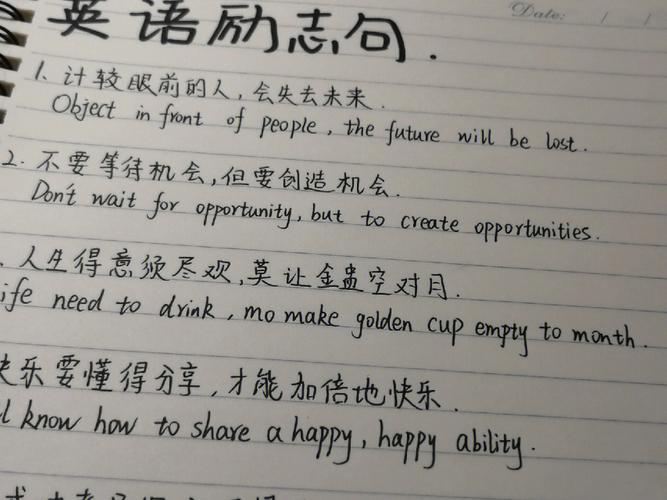 英语励志句.
Date: / /
1. 计较眼前的人,会失去未来.
Object in front of people, the future will be lost.
2. 不要等待机会,但要创造机会.
Don't wait for opportunity, but to create opportunities.
. 人生得意须尽欢,莫让金盅空对月.
ife need to drink, mo make golden cup empty to month.
快乐要懂得分享,才能加倍地快乐.
l know how to share a happy, happy ability.